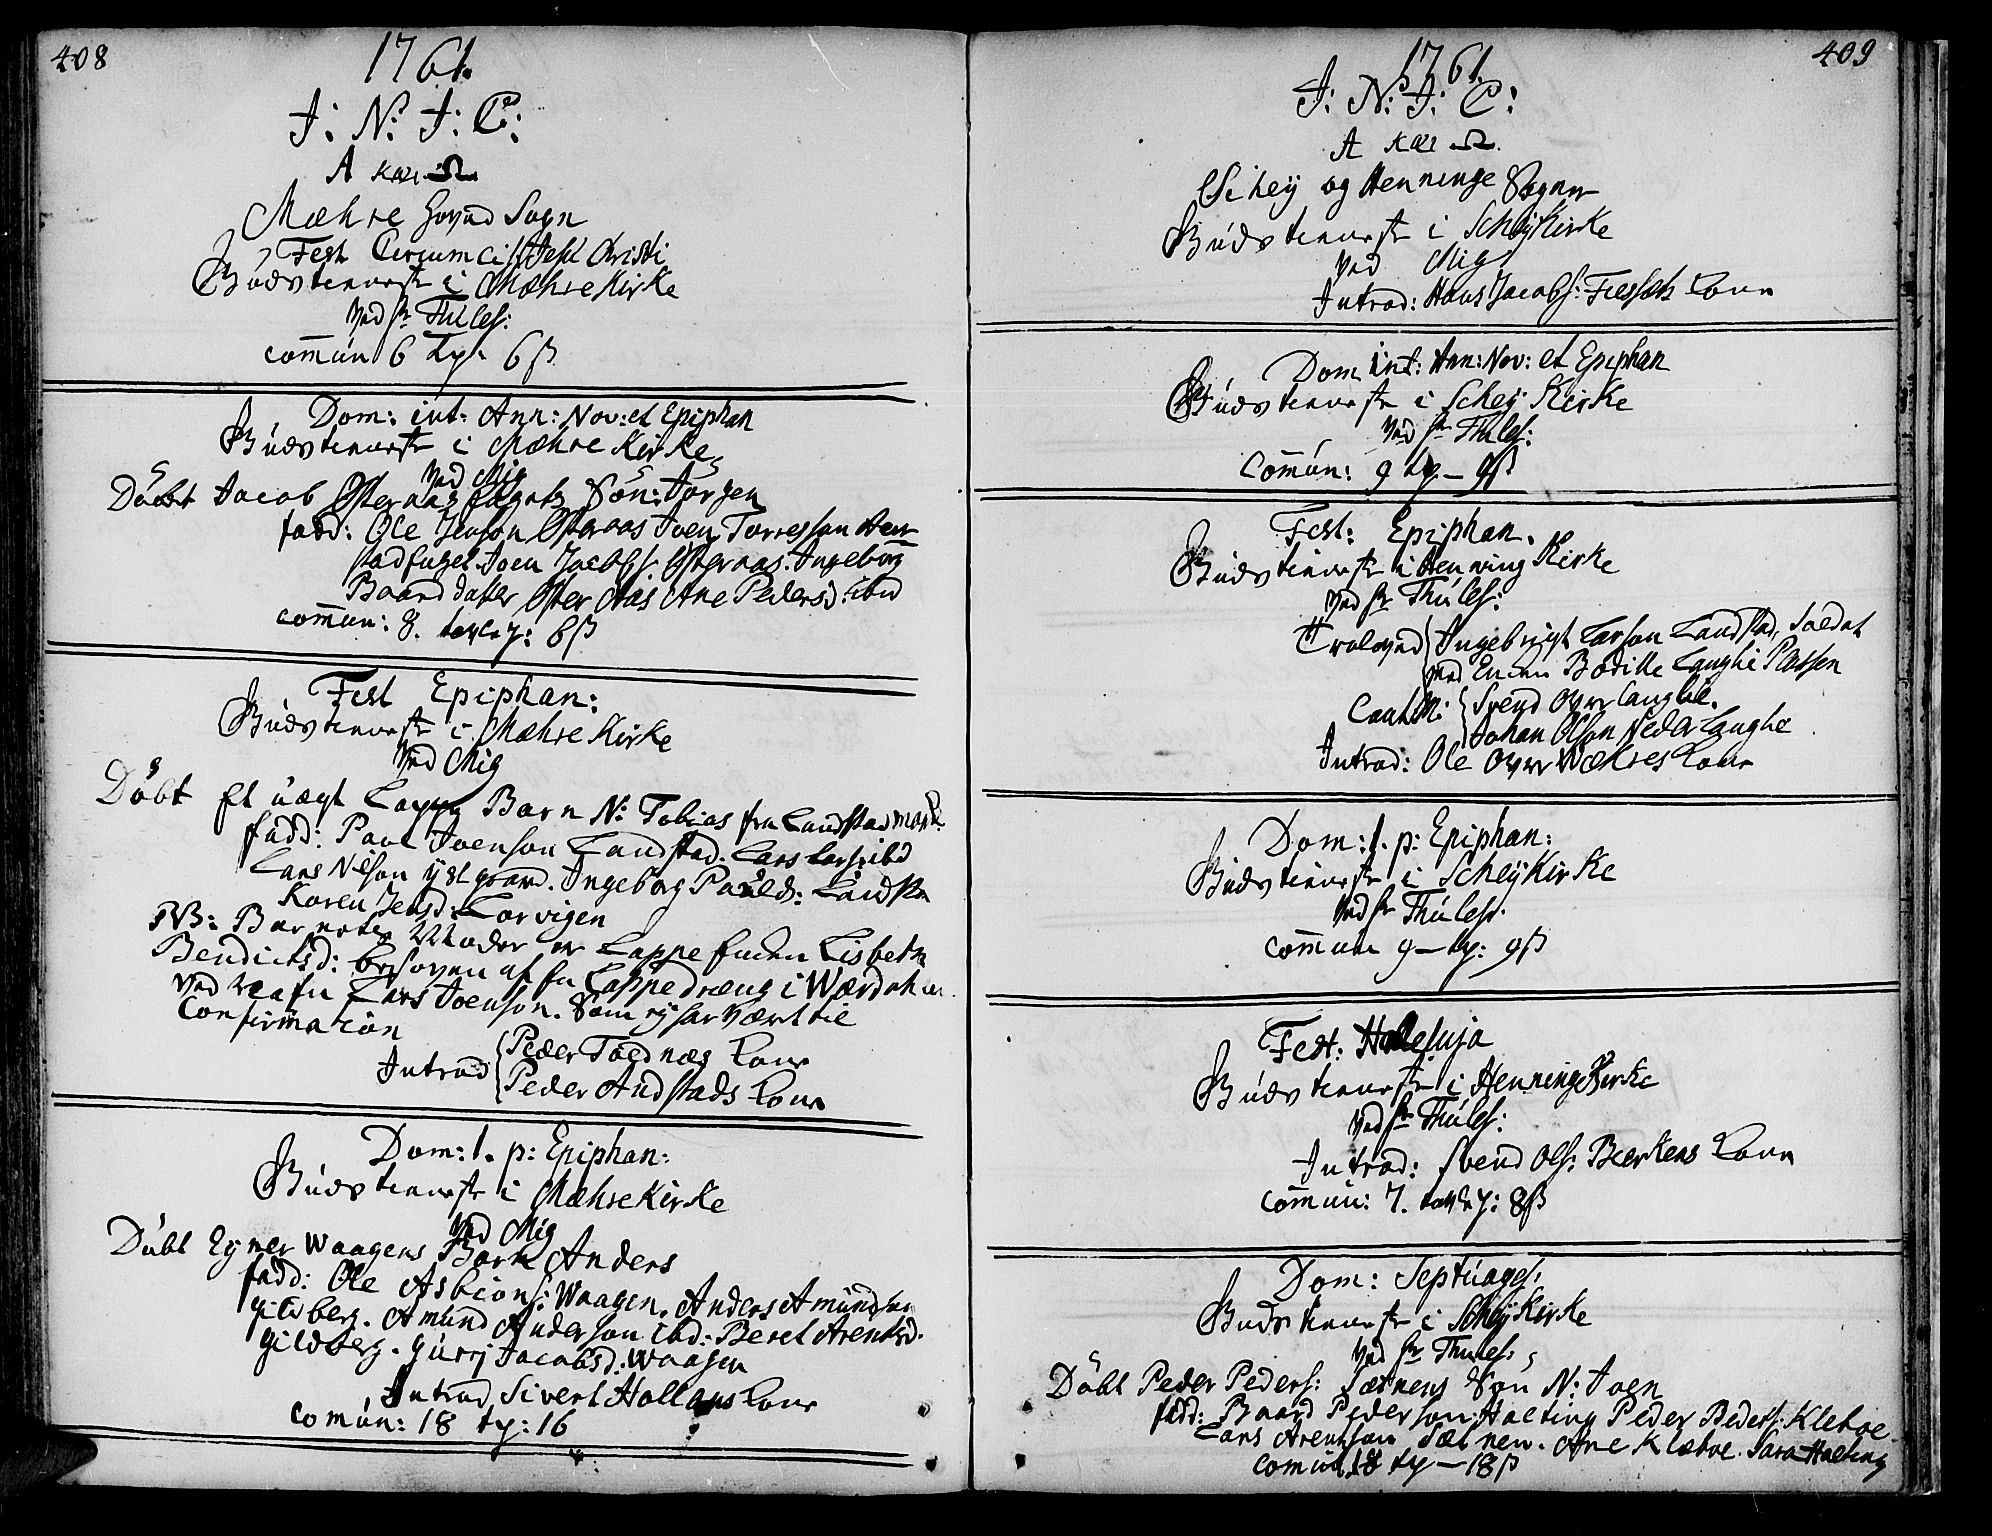 408
1761.
J: N: J: C:
A και Ω
Mæhre Hoved Sogn
Fest Circumciss Jesu Christi
Gudstienneste i Mæhre Kirke
Ved Hr Thiles:
com̄un 6 6 ß
Dom: int: Ann: Nov: et Epiphan
Gudstienneste i Mæhre Kirke
Ved Mig
Döbt Jacob Østeraas Sön: Jörgen
fadd: Ole Jenson Østeraas Joen Torresson
Joen Jacobs: Østeraas. Ingeborg
Baardsdatter Øster Aas Ane Pedersd: ibid
com̄un: 8. 6 ß
Fest Epiphan:
Gudstienneste i Mæhre Kirke
Ved Mig
Döbt Et uægt Lappe Barn N: Tobias fra Landstad mark
fadd: Paul Joenson Landstad. Lars Lars: ibid
Lars Nilson Ystgaard. Ingeborg Pauelsd: Landsta
Karen Jensd: Korvigen
NB: Barnets Moder er Lappe Lisbeth
Bendictsd: besoven af en Lappe dræng i Wærdahlen
Ved Nafn Lars Joenson. Som ej har været til
Confirmation
Introd Peder Toldnæs Kone
Peder Andstads Kone
Dom: 1. p: Epiphan:
Gudstienneste i Mæhre Kirke
Ved Mig
Döbt Eyner Waagens Barn Anders
fadd: Ole Asbiöns: Waagen. Anders Amundsen
Gildberg. Amund Anderson ibd: Beret Arentsd.
Gildberg. Gurrj Jacobsd: Waagen
Introd Sivert Hollans Kone
com̄un: 18 16
409
1761.
J: N: J: C:
A και Ω.
Schey og Henninge Sogner
Gudstienneste i Schey Kirke
Ved Mig
Introd: Hans Jacobs: Kone
Dom int: Ann: Nov: et Epiphan
Gudstienneste i Schey Kirke
Ved Hr Thiles:
Com̄un: 9 – 9 ß
Fest: Epiphan.
Gudstienneste i Henning Kirke
Ved Hr Thiles:
Troloved Ingebrigt Larson Landstad, Soldat
med Enken Bodille Langhe Plassen
Caut: Svend Over Langhe.
Johan Olson Neder Langhe
Introd: Ole Over Wæhres Kone
Dom: 1. p: Epiphan:
Gudstienneste i Schey Kirke
Ved Hr Thiles:
Com̄un 9 – 9 ß
Fest: Halleluja
Gudstienneste i Henninge Kirke
Ved Hr Thiles:
Introd: Svend Ols: Berkens Kone
Com̄un: 7. 8 ß
Dom: Septuages:
Gudstienneste i Schey Kirke
Ved Hr Thiles:
Döbt Peder Peders: Sætnens Sön N: Joen
fadd: Baard Pederson Halting Peder Peders: Kletvoe
Lars Arentson Sætnen. Ane Klætvoe. Sara Halting
Com̄un 18 – 18 ß